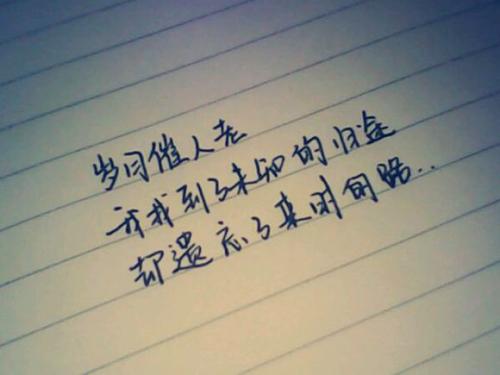 岁月催人老
亦找到了未知的归途
却遗忘了来时的路..